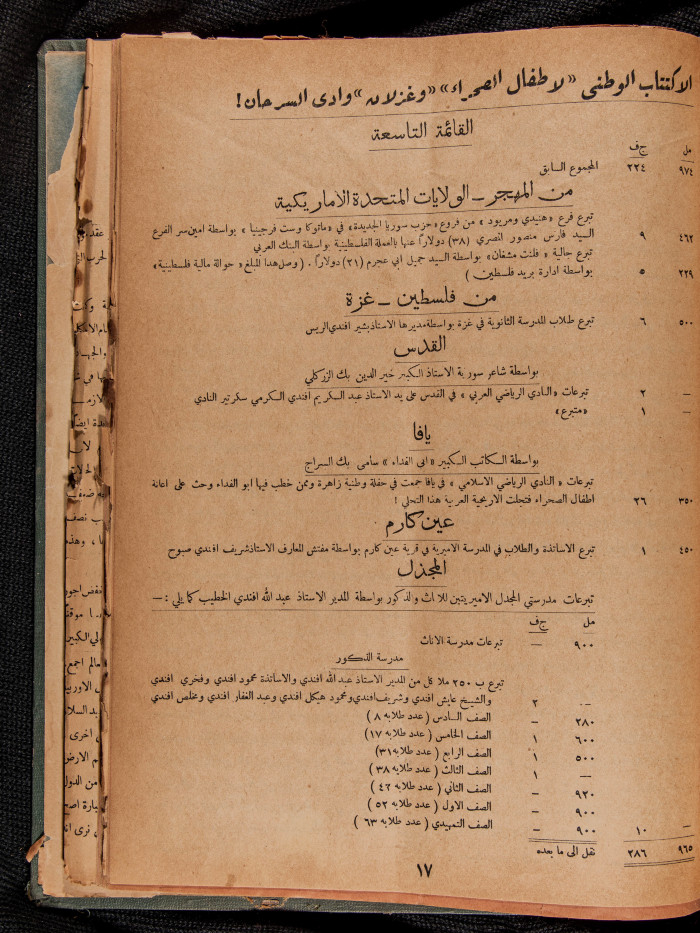 الاكتتاب الوطنى «لاطفال الصحراء» «وغزلان» وادى السرحان!
القائمة التاسعة
مل ج ف
٩٧٤ ٢٢٤ المجموع السابق
من المهجر ــ الولايات المتحدة الأماريكية
تبرع فرع «هنيدي ومربود» من فروع «حزب سوريا الجديدة» في «ماتوكا وست فرجينيا» بواسطة امين سر الفرع
٤٦٢ ٩ السيد فارس منصور انصري (٣٨) دولاراً عنها بالعملة الفلسطينية بواسطة البنك العربي
تبرع جالية «فلنت مشغان» بواسطة السيد جميل ابي عجرم (٢١) دولاراً. (وصل هذا المبلغ «حوالة مالية فلسطينية»
٢٢٩ ٥ بواسطة ادارة بريد فلسطين)
من فلسطين ــ غزة
٥٠٠ ٦ تبرع طلاب المدرسة الثانوية في غزة بواسطة مديرها الاستاذ بشير افندي الريس
القدس
بواسطة شاعر سورية الاستاذ الكبير خير الدين بك الزركلي
— ٢ تبرعات «النادي الرياضي العربي» في القدس على يد الاستاذ عبد الكريم افندي الكرمي سكرتير النادي
— ١ «متبرع»
يافا
بواسطة الكاتب الكبير «ابى الفداء» سامى بك السراج
تبرعات «النادي الرياضي الاسلامي» في يافا جمعت في حفلة وطنية زاهرة وممن خطب فيها ابو الفداء وحث على اعانة
٣٥٠ ٢٦ اطفال الصحراء فتجلت الاريحية العربية هذا التجلي!
عين كارم
٤٥٠ ١ تبرع الاساتذة والطلاب في المدرسة الاميرية في قرية عين كارم بواسطة مفتش المعارف الاستاذ شريف افندي صبوح
المجدل
تبرعات مدرستي المجدل الاميريتين للاناث والذكور بواسطة المدير الاستاذ عبد الله افندي الخطيب كما يلي: —
مل ج ف
٩٠٠ — تبرعات مدرسة الاناث
مدرسة الذكور
تبرع ب ٢٥٠ ملا كل من المدير الاستاذ عبد الله افندي والاساتذة محمود افندي وفخري افندي
— ٢ والشيخ عايش افندي وشريف افندي ومحمود هيكل افندي وعبد الغفار افندي ومخلص افندي
٢٨٠ — الصف السادس (عدد طلابه ٨)
٦٠٠ ١ الصف الخامس (عدد طلابه ١٧)
٥٠٠ ١ الصف الرابع (عدد طلابه ٣١)
— ١ الصف الثالث (عدد طلابه ٣٨)
٩٢٠ — الصف الثاني (عدد طلابه ٤٢)
٩٠٠ — الصف الاول (عدد طلابه ٥٢)
— ١٠ ٩٠٠ — الصف التمهيدي (عدد طلابه ٦٣)
٩٦٥ ٢٨٦ نقل الى ما بعده
١٧